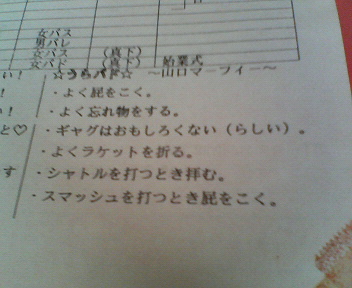 女バス
男バレ
女バス （真下）
女バド （真下） 始業式
い！ ☆うらバド☆ ～山口マーフィー～
！ ・よく屁をこく。
い！ ・よく忘れ物をする。
と♡ ・ギャグはおもしろくない（らしい）。
・よくラケットを折る。
す ・シャトルを打つとき拝む。
・スマッシュを打つとき屁をこく。